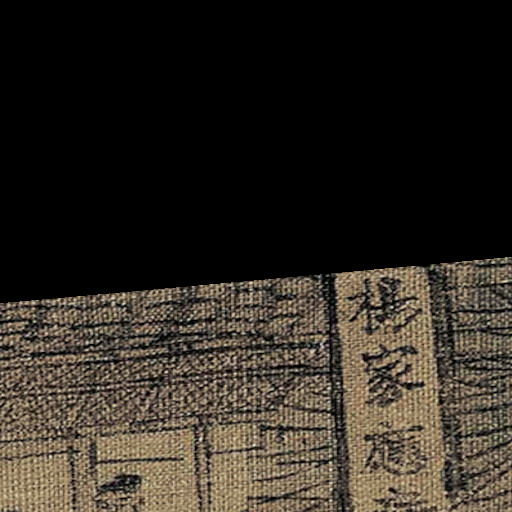 楊家應